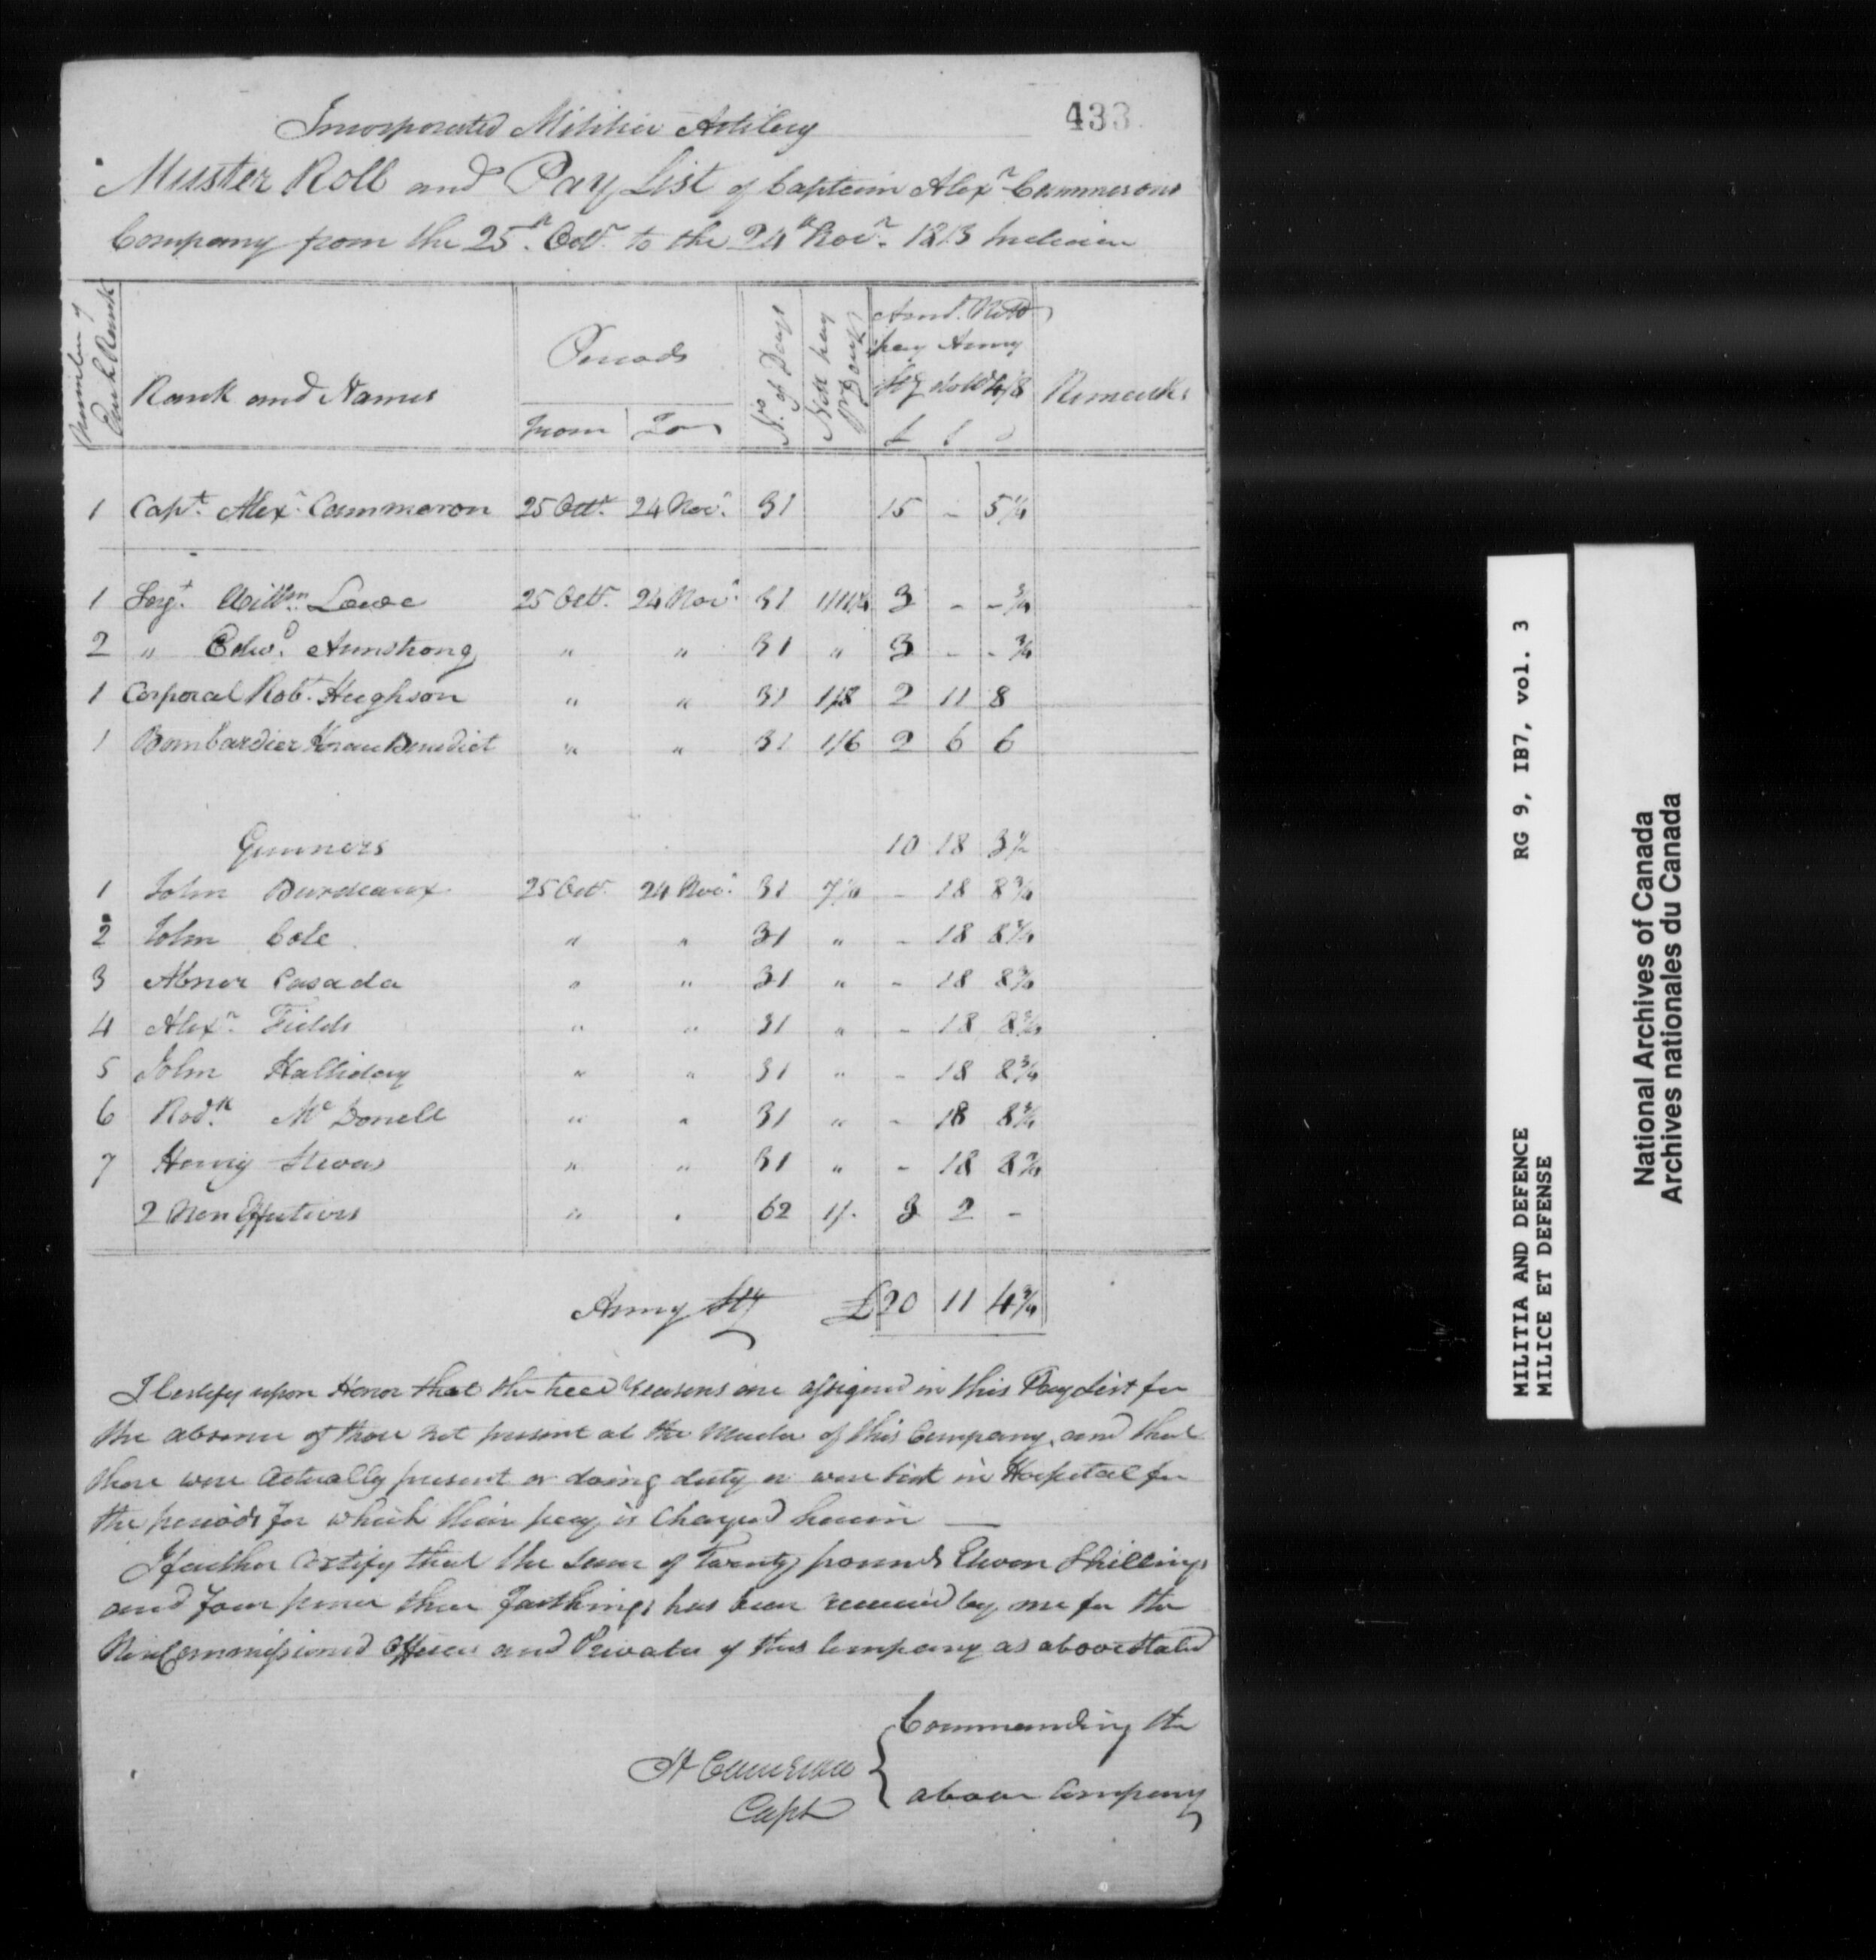 433
Incorporated Militia Artillery
Muster Roll and Pay List of Captain Alexr. Cammerons
Company from the 25th. Octr. to the 24th Novr. 1813 Inclusive
Number of Each Rank
Rank and Names
Periods
From To
No. of Days
Nett pay pr Day
Amt. Nett
pay Army
Stg dolls 4/8
£ s d
Remarks
1 Capt. Alexr. Cammeron 25 Octr. 24 Novr. 31 15 - 5 1/4
1 Sergt. Willm. Lowe 25 Octr. 24 Novr. 31 1/11 1/4 3 - - 3/4
2 " Edwd. Armstrong " " 31 " 3 - - 3/4
1 Corporal Robt. Hughson " " 31 1/8 2 11 8
1 Bombardier Benedict " " 31 1/6 2 6 6
10 18 3 1/2
Gunners
1 John Burdeaux 25 Octr. 24 Novr. 31 7 1/4 - 18 8 3/4
2 John Cole " " 31 " - 18 8 3/4
3 Abner Casada " " 31 " - 18 8 3/4
4 Alexr. Fields " " 31 " - 18 8 3/4
5 John Halliday " " 31 " - 18 8 3/4
6 Rodk. McDonell " " 31 " - 18 8 3/4
7 Henry Stevens " " 31 " - 18 8 3/4
2 Non Effectives " " 62 1/- 3 2 -
Army Stg £20 11 4 3/4
I Certify upon Honor that the true reasons are assigned in this Pay List for
the absence of those not present at the Muster of this Company, and that
those were actually present or doing duty or were sick in Hospital for
the periods for which their pay is Charged herein
I further Certify that the sum of Twenty pounds Eleven Shillings
and four pence three farthings has been received by me for the
Non Commissioned Officers and Privates of this Company as above stated
A Cameron
Capt
Commanding the
above Company
MILITIA AND DEFENCE RG 9, IB7, vol. 3
MILICE ET DEFENSE
National Archives of Canada
Archives nationales du Canada